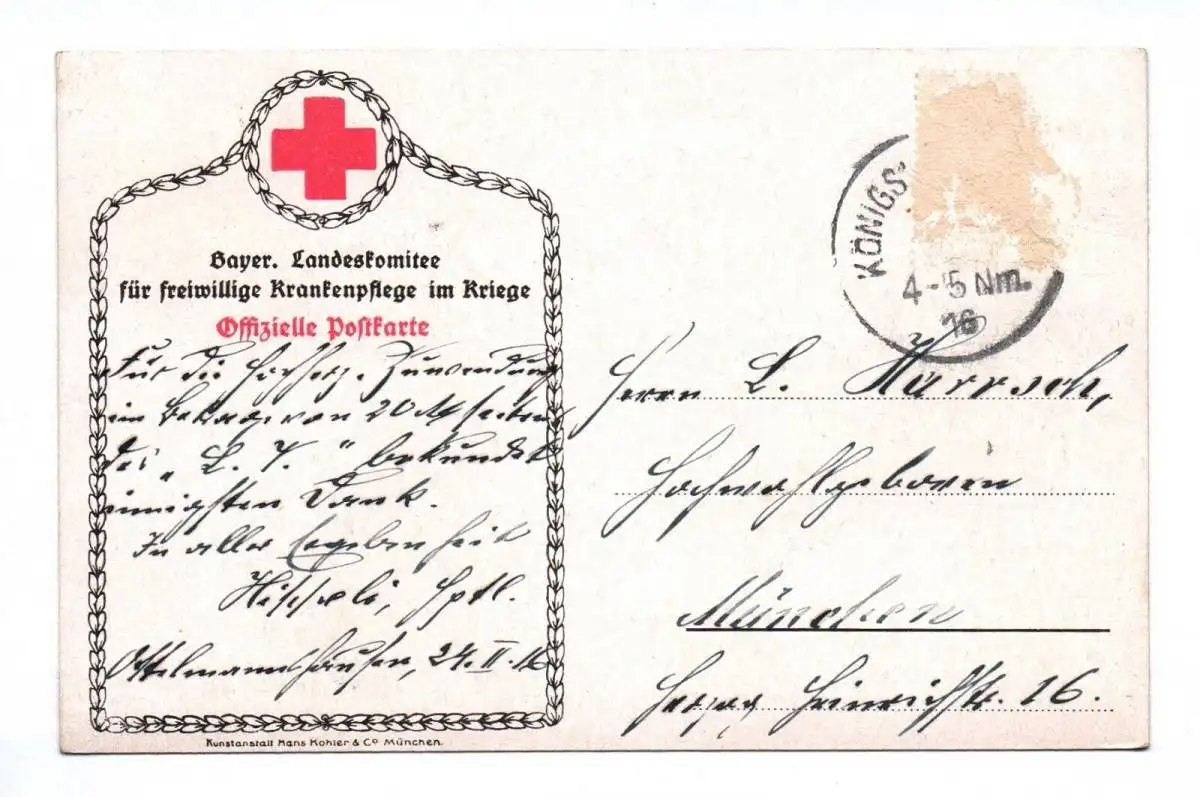 Bayer. Landeskomitee
für freiwillige Krankenpflege im Kriege
Offizielle Postkarte
Für die hochherz. Zuwendung
im Betrage von 20 M seitens
des „L. V.“ bekundet
innigsten Dank.
In aller Ergebenheit
Hptl.
Ottelmannshausen, 24. II. 16
Kunstanstalt Hans Kohler & Co München.
KÖNIGS
4-5 Nm.
16
Herrn L. Harrsch,
Hochwohlgeboren
München
Herzog Heinrichstr. 16.